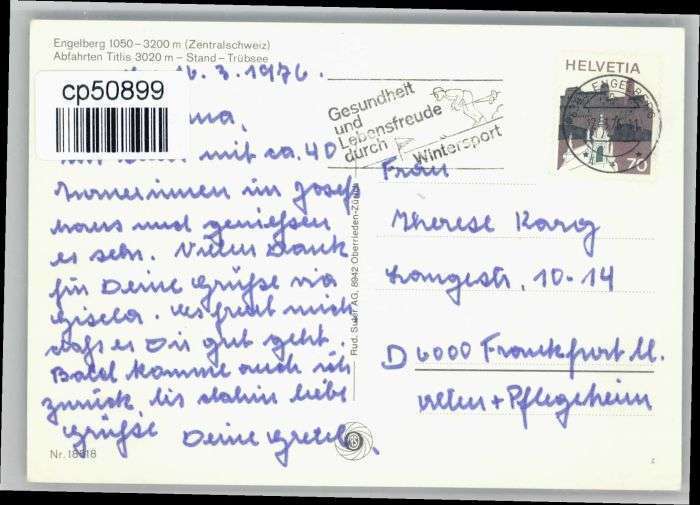 Engelberg 1050–3200 m (Zentralschweiz)
Abfahrten Titlis 3020 m – Stand – Trübsee
16.3.1976.
cp50899
mit ca. 40
Turnerinnen im Josefs
haus und geniessen
es sehr. Vielen Dank
für Deine Grüße via
Gisela. es freut mich
daß es Dir gut geht.
Bald komme auch ich
zurück bis dahin liebe
Grüße Deine Gretel.
Nr. 18618
Rud. Suter AG, 8942 Oberrieden-Zürich
Gesundheit
und
Lebensfreude
durch
Wintersport
HELVETIA
ENGELBERG
70
Frau
Therese Karg
Langestr. 10-14
D 6000 Franckfurt M.
Alten + Pflegeheim